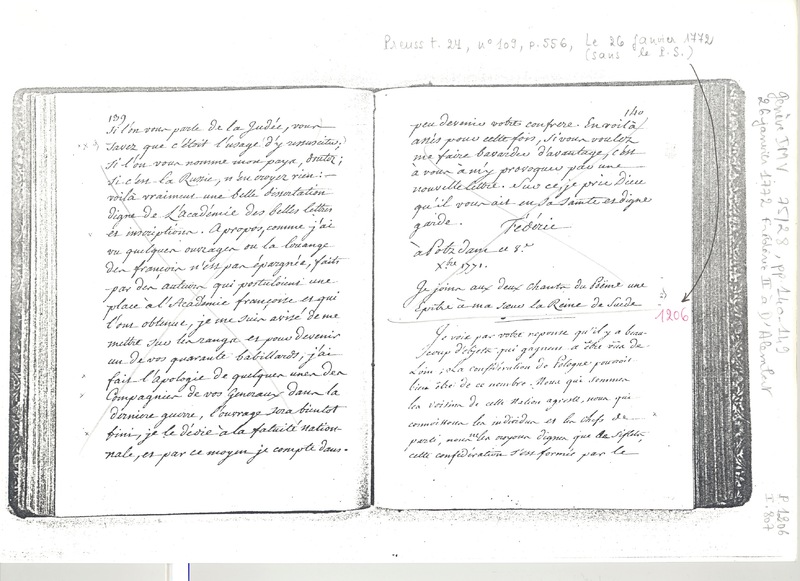 Preuss t. 24, n° 109, p. 556, Le 26 janvier 1772
(sans le P.S.)
139
Si l'on vous parle de la Judée, vous
savez que c'étoit l'usage d'y ressusciter;
Si l'on vous nomme mon pays, doutez;
Si c'est la Russie, n'en croyez rien:
voilà vraiment une belle dissertation
digne de L'académie des belles lettres
et inscriptions. Apropos, comme j'ai
vu quelques ouvrages ou la louange
des françois n'est pas épargnée, faits
par des auteurs qui postuloient une
place à l'Académie françoise et qui
l'ont obtenue, je me suis avisé de me
mettre sur les rangs et pour devenir
un de vos quarante babillards, j'ai
fait l'Apologie de quelques unes des
Compagnies de vos Generaux dans la
derniere guerre, l'ouvrage sera bientot
fini, je le dédie à la fatuité nation-
nale, et par ce moyen je compte dans
140
peu devenir votre confrere. En voilà
assés pour cette fois, si vous voulez
me faire bavarder d'avantage, c'est
à vous à m'y provoquer par une
nouvelle lettre. Sur ce, je prie Dieu
qu'il vous ait en sa Sainte et digne
garde. Fédéric
à Potzdam ce 8.e
Xbre 1771.
Je joins aux deux chants du Poême une
Epitre à ma soeur la Reine de Suéde
1206
Je vois par votre reponse qu'il y a beau-
coup d'objets qui gagnent à être vus de
Loin; La confédération de Pologne pourroit
bien être de ce nombre. Nous qui sommes
les voisins de cette nation agreste, nous qui
connoissons les individus et les chefs de
parti, nous les croyons dignes que des sifflets
cette confédération s'est formée par le
Genève IMV 75/28, pp 140-149
26 janvier 1772 Frédéric II à D'Alembert
P 1206
I. 807